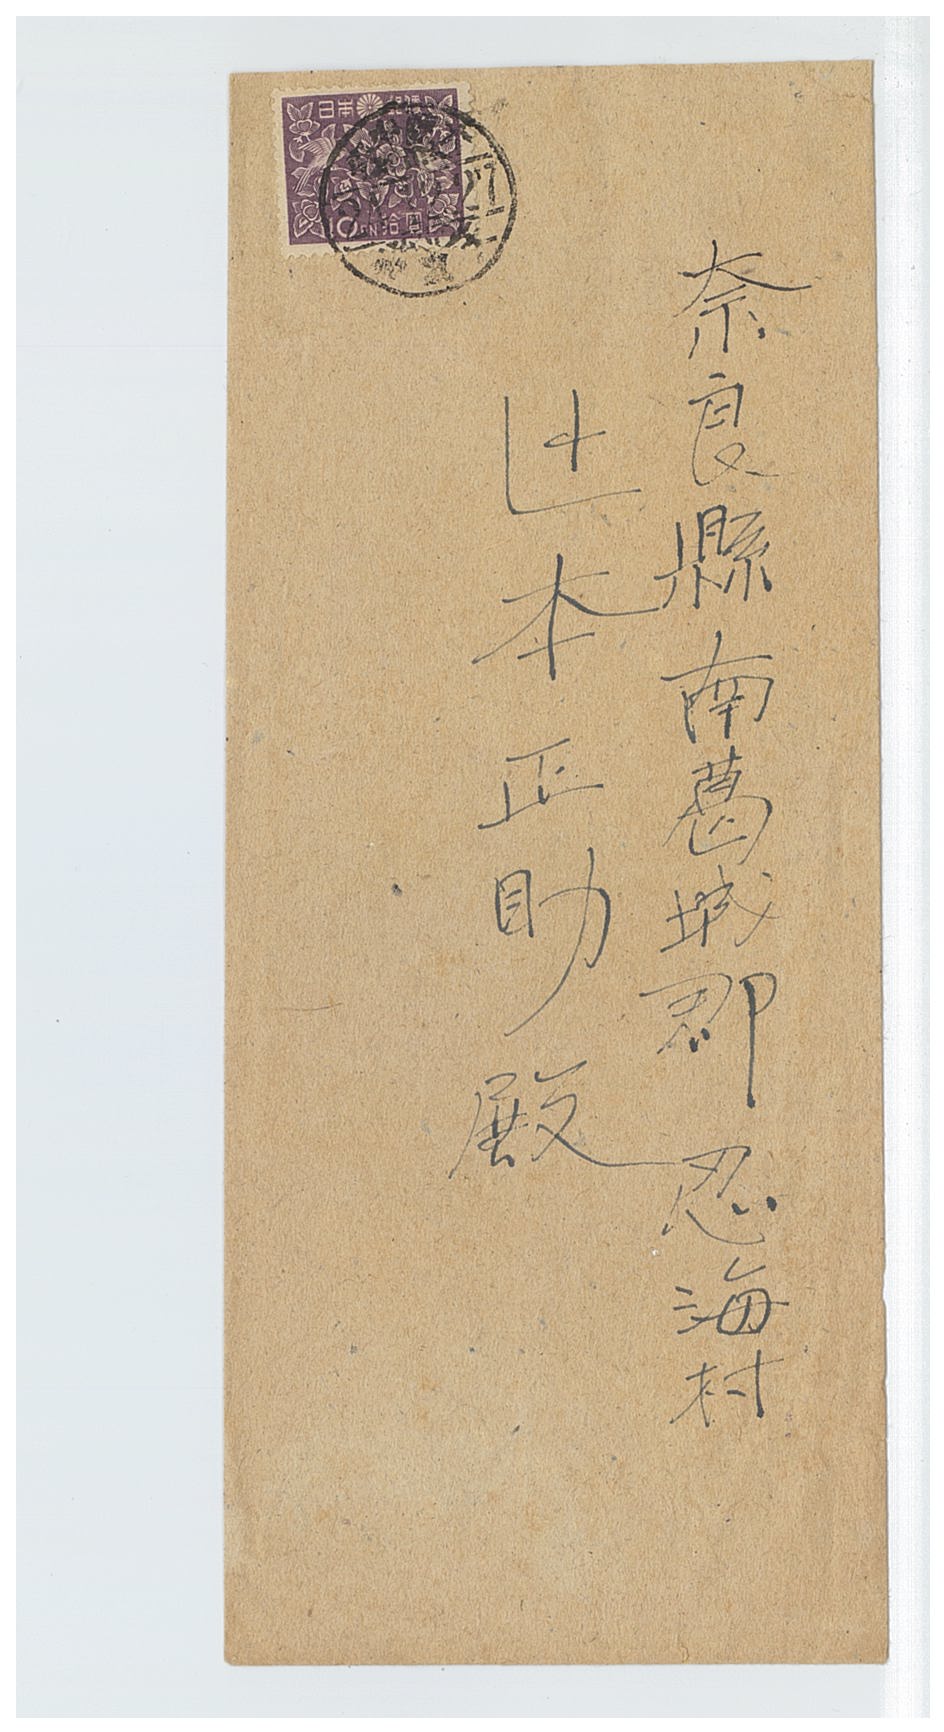 奈良縣南葛城郡忍海村
辻本正助殿
日本郵便
10 SN 拾圓
27